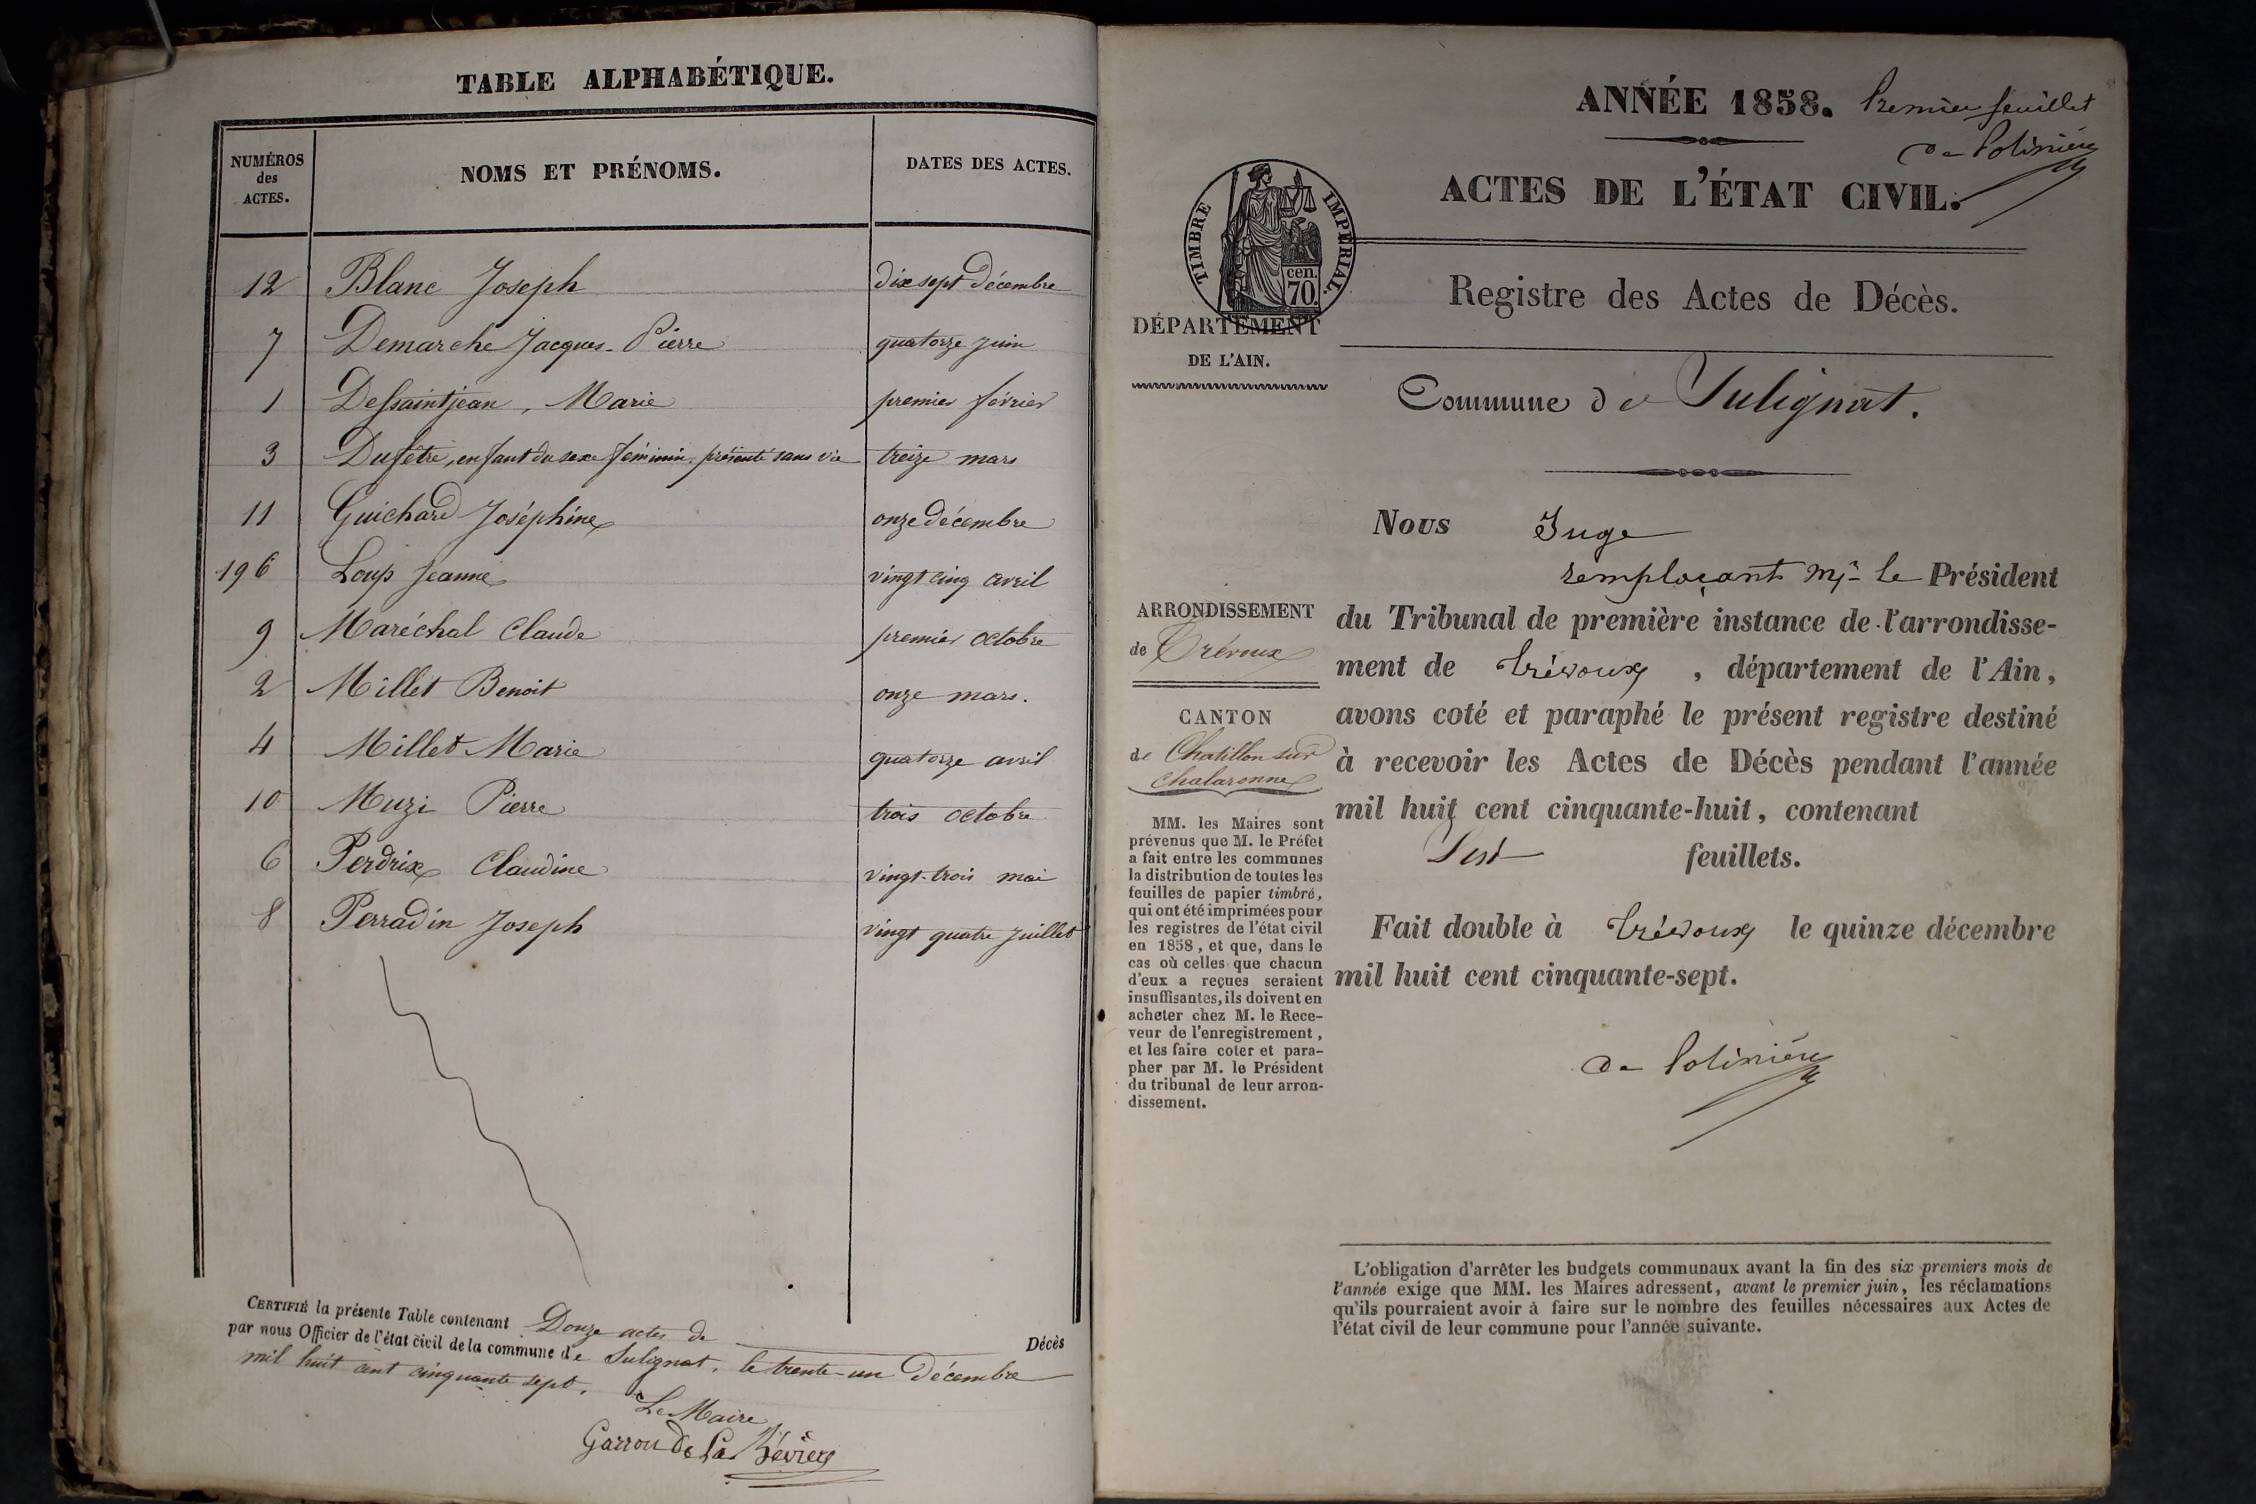 TABLE ALPHABÉTIQUE.
NUMÉROS
des
ACTES.
NOMS ET PRÉNOMS.
DATES DES ACTES.
12 Blanc Joseph dix sept décembre
7 Demarche Jacques-Pierre quatorze juin
1 Dessaintjean, Marie premier février
3 Dufêtre, enfant du sexe féminin présenté sans vie treize mars
11 Guichard Joséphine onze décembre
Loup Jeanne vingt cinq avril
9 Maréchal Claude premier octobre
2 Millet Benoit onze mars.
4 Millet Marie quatorze avril
10 Muzi Pierre trois octobre
6 Perdrix Claudine vingt-trois mai
8 Perradin Joseph vingt quatre juillet
CERTIFIÉ la présente Table contenant Douze actes de Décès
par nous Officier de l'état civil de la commune de Sulignat, le trente-un Décembre
mil huit cent cinquante sept.
Le Maire
Garron de La Bévière
ANNÉE 1858. Premier feuillet
de Polinière
ACTES DE L'ÉTAT CIVIL.
TIMBRE IMPÉRIAL.
cen.
70.
Registre des Actes de Décès.
DÉPARTEMENT
DE L'AIN.
Commune de Sulignat.
Nous Juge
remplaçant Mr le Président
du Tribunal de première instance de l'arrondisse-
ment de Trévoux, département de l'Ain,
avons coté et paraphé le présent registre destiné
à recevoir les Actes de Décès pendant l'année
mil huit cent cinquante-huit, contenant
feuillets.
Fait double à Trévoux le quinze décembre
mil huit cent cinquante-sept.
de Polinière
ARRONDISSEMENT
de Trévoux
CANTON
de Chatillon sur
Chalaronne
MM. les Maires sont
prévenus que M. le Préfet
a fait entre les communes
la distribution de toutes les
feuilles de papier timbré,
qui ont été imprimées pour
les registres de l'état civil
en 1858, et que, dans le
cas où celles que chacun
d'eux a reçues seraient
insuffisantes, ils doivent en
acheter chez M. le Rece-
veur de l'enregistrement,
et les faire coter et para-
pher par M. le Président
du tribunal de leur arron-
dissement.
L'obligation d'arrêter les budgets communaux avant la fin des six premiers mois de
l'année exige que MM. les Maires adressent, avant le premier juin, les réclamations
qu'ils pourraient avoir à faire sur le nombre des feuilles nécessaires aux Actes de
l'état civil de leur commune pour l'année suivante.